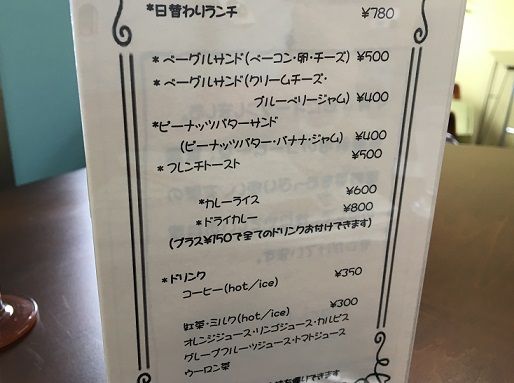 *日替わりランチ ¥780
*ベーグルサンド(ベーコン・卵・チーズ) ¥500
*ベーグルサンド(クリームチーズ・
ブルーベリージャム) ¥400
*ピーナッツバターサンド
(ピーナッツバター・バナナ・ジャム) ¥400
*フレンチトースト ¥500
*カレーライス ¥600
*ドライカレー ¥800
(プラス¥150で全てのドリンクお付けできます)
*ドリンク
コーヒー(hot/ice) ¥350
紅茶・ミルク(hot/ice) ¥300
オレンジジュース・リンゴジュース・カルピス
グレープフルーツジュース・トマトジュース
ウーロン茶
できます